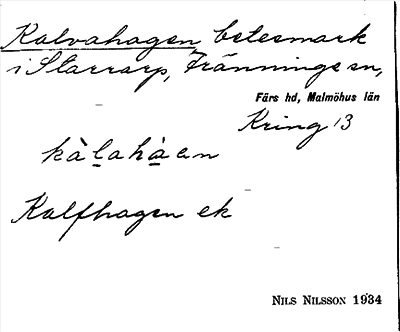 Kalvahagen betesmark
i Starrarp, Tränningesn,
Färs hd, Malmöhus län
Kring 13
kàlahàan
Kalfhagen ek
NILS NILSSON 1934